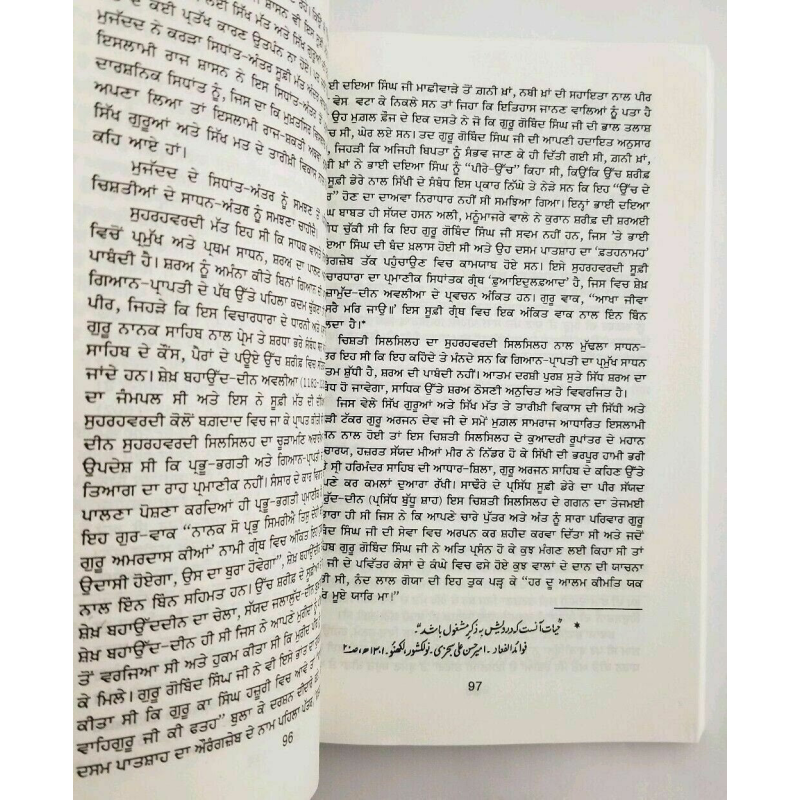 ਲਈ ਸਿੱਖ ਮੱਤ ਅਤੇ ਸਿੱਖ ਗੁਰੂ
ਦੇ ਕੋਈ ਪ੍ਰਤੱਖ ਕਾਰਣ ਉਤਪੰਨ ਨਾ ਹੋਏ।
ਮੁਜੱਦਦ ਨੇ ਕਰੜਾ ਸਿਧਾਂਤ-ਅੰਤਰ ਸੂਫ਼ੀ ਮੱਤ
ਇਸਲਾਮੀ ਰਾਜ ਸ਼ਾਸਨ ਨੇ ਇਸ ਸਿਧਾਂਤ-ਅੰਤਰ
ਦਾਰਸ਼ਨਿਕ ਸਿਧਾਂਤ ਨੂੰ, ਜਿਸ ਦਾ ਕਿ ਮੁਖ਼ਤਸਿਰ
ਅਪਣਾ ਲਿਆ ਤਾਂ ਇਸਲਾਮੀ ਰਾਜ-ਸ਼ਕਤੀ
ਸਿੱਖ ਗੁਰੂਆਂ ਅਤੇ ਸਿੱਖ ਮਤ ਦੇ ਤਾਰੀਖ਼ੀ ਵਿਕਾਸ
ਕਹਿ ਆਏ ਹਾਂ।
ਮੁਜੱਦਦ ਦੇ ਸਿਧਾਂਤ-ਅੰਤਰ ਨੂੰ ਸਮਝਣ
ਚਿਸ਼ਤੀਆਂ ਦੇ ਸਾਧਨ-ਅੰਤਰ ਨੂੰ ਸਮਝਣਾ ਚਾਹੀਦੈ।
ਸੁਹਰਹਵਰਦੀ ਮੱਤ ਇਹ ਸੀ ਕਿ ਸਾਧਕ ਵਾਸਤੇ
ਵਿਚੋਂ ਪ੍ਰਮੁੱਖ ਅਤੇ ਪ੍ਰਥਮ ਸਾਧਨ, ਸ਼ਰਅ ਦਾ ਪਾਲਣ
ਪਾਬੰਦੀ ਹੈ। ਸ਼ਰਅ ਨੂੰ ਅਮੰਨਾ ਕੀਤੇ ਬਿਨਾਂ ਗਿਆਨ
ਗਿਆਨ-ਪ੍ਰਾਪਤੀ ਦੇ ਪੱਥ ਉੱਤੇ ਪਹਿਲਾ ਕਦਮ
ਪੀਰ, ਜਿਹੜੇ ਕਿ ਇਸ ਵਿਚਾਰਧਾਰਾ ਦੇ ਧਾਰਨੀ ਅਤੇ
ਗੁਰੂ ਨਾਨਕ ਸਾਹਿਬ ਨਾਲ ਪ੍ਰੇਮ ਤੇ ਸ਼ਰਧਾ ਭਰੇ ਸੰਬੰਧ
ਸਾਹਿਬ ਦੇ ਕੌਂਸ, ਪੈਰਾਂ ਦੇ ਪਊਏ ਉੱਚ ਸ਼ਰੀਫ਼ ਵਿਚ
ਜਾਂਦੇ ਹਨ। ਸ਼ੇਖ਼ ਬਹਾਉੱਦ-ਦੀਨ ਅਵਲੀਆ
ਦਾ ਜੰਮਪਲ ਸੀ ਅਤੇ ਇਸ ਨੇ ਸੂਫ਼ੀ ਮੱਤ ਦੀ
ਸੁਹਰਹਵਰਦੀ ਕੋਲੋਂ ਬਗ਼ਦਾਦ ਵਿਚ ਜਾ ਕੇ ਪ੍ਰਾਪਤ ਕੀਤੀ
ਦੀਨ ਸੁਹਰਹਵਰਦੀ ਸਿਲਸਿਲਹ ਦਾ ਚੂੜਾਮਣਿ
ਉਪਦੇਸ਼ ਸੀ ਕਿ ਪ੍ਰਭੂ-ਭਗਤੀ ਅਤੇ ਗਿਆਨ-ਪ੍ਰਾਪਤੀ
ਤਿਆਗ ਦਾ ਰਾਹ ਪ੍ਰਮਾਣੀਕ ਨਹੀਂ। ਸੰਸਾਰ ਦੇ ਕਾਰ
ਪਾਲਣਾ ਪੋਸ਼ਣਾ ਕਰਦਿਆਂ ਹੀ ਪ੍ਰਭੂ-ਭਗਤੀ ਪ੍ਰਮਾਣੀਕ
ਇਹ ਗੁਰ-ਵਾਕ “ਨਾਨਕ ਸੋ ਪ੍ਰਭੁ ਸਿਮਰੀਐ ਤਿਸੁ
ਗੁਰੂ ਅਮਰਦਾਸ ਕੀਆਂ” ਨਾਮੀ ਗ੍ਰੰਥ ਵਿਚ ਅੰਕਿਤ
ਉਦਾਸੀ ਹੋਏਗਾ, ਉਸ ਦਾ ਬੁਰਾ ਹੋਵੇਗਾ”, ਸ਼ੇਖ਼ ਬਹਾਉੱਦ
ਨਾਲ ਇੰਨ ਬਿੰਨ ਸਹਿਮਤ ਹਨ। ਉੱਚ ਸ਼ਰੀਫ਼ ਦੇ ਸੂਫ਼ੀਆਂ
ਸ਼ੇਖ਼ ਬਹਾਉੱਦਦੀਨ ਦਾ ਚੇਲਾ, ਸੱਯਦ ਜਲਾਲੁੱਦ-ਦੀਨ
ਸ਼ੇਖ਼ ਬਹਾਉੱਦ-ਦੀਨ ਹੀ ਸੀ ਜਿਸ ਨੇ ਆਪਣੇ ਮੁਰੀਦਾਂ ਨੂੰ
ਤੋਂ ਵਰਜਿਆ ਸੀ ਅਤੇ ਹੁਕਮ ਕੀਤਾ ਸੀ ਕਿ ਮੁਰੀਦ
ਕੇ ਮਿਲੇ। ਗੁਰੂ ਗੋਬਿੰਦ ਸਿੰਘ ਜੀ ਨੇ ਵੀ ਇਸੇ ਭਾਂਤ
ਕੀਤਾ ਸੀ ਕਿ ਗੁਰੂ ਕਾ ਸਿੰਘ ਹਜ਼ੂਰੀ ਵਿਚ ਆਵੇ ਤਾਂ
ਵਾਹਿਗੁਰੂ ਜੀ ਕੀ ਫਤਹ” ਬੁਲਾ ਕੇ ਦਰਸ਼ਨ ਦੀਦਾਰੇ
ਦਸਮ ਪਾਤਸ਼ਾਹ ਦਾ ਔਰੰਗਜ਼ੇਬ ਦੇ ਨਾਮ ਪਹਿਲਾ ਪੱਤਰ,
96
ਈ ਦਇਆ ਸਿੰਘ ਜੀ ਮਾਛੀਵਾੜੇ ਤੋਂ ਗ਼ਨੀ ਖ਼ਾਂ, ਨਬੀ ਖ਼ਾਂ ਦੀ ਸਹਾਇਤਾ ਨਾਲ ਪੀਰ
ਵੇਸ ਵਟਾ ਕੇ ਨਿਕਲੇ ਸਨ ਤਾਂ ਜਿਹਾ ਕਿ ਇਤਿਹਾਸ ਜਾਨਣ ਵਾਲਿਆਂ ਨੂੰ ਪਤਾ ਹੈ
ਉਹ ਮੁਗ਼ਲ ਫ਼ੌਜ ਦੇ ਇਕ ਦਸਤੇ ਨੇ ਜੋ ਕਿ ਗੁਰੂ ਗੋਬਿੰਦ ਸਿੰਘ ਜੀ ਦੀ ਭਾਲ ਤਲਾਸ਼
ਚ ਸੀ, ਘੇਰ ਲਏ ਸਨ। ਤਦ ਗੁਰੂ ਗੋਬਿੰਦ ਸਿੰਘ ਜੀ ਦੀ ਆਪਣੀ ਹਦਾਇਤ ਅਨੁਸਾਰ
, ਜਿਹੜੀ ਕਿ ਅਜਿਹੀ ਬਿਪਤਾ ਨੂੰ ਸੰਭਵ ਜਾਣ ਕੇ ਹੀ ਦਿੱਤੀ ਗਈ ਸੀ, ਗ਼ਨੀ ਖ਼ਾਂ,
ੀ ਖ਼ਾਂ ਨੇ ਭਾਈ ਦਇਆ ਸਿੰਘ ਨੂੰ “ਪੀਰੇ-ਉੱਚ” ਕਿਹਾ ਸੀ, ਕਿਉਂਕਿ ਉੱਚ ਸ਼ਰੀਫ਼
ਸੂਫ਼ੀ ਡੇਰੇ ਨਾਲ ਸਿੱਖੀ ਦੇ ਸੰਬੰਧ ਇਸ ਪ੍ਰਕਾਰ ਨਿੱਘੇ ਤੇ ਨੇੜੇ ਸਨ ਕਿ ਇਹ “ਉੱਚ ਦੇ
ਰ” ਹੋਣ ਦਾ ਦਾਅਵਾ ਨਿਰਾਧਾਰ ਨਹੀਂ ਸੀ ਸਮਝਿਆ ਗਿਆ। ਇਨ੍ਹਾਂ ਭਾਈ ਦਇਆ
ਘ ਬਾਬਤ ਹੀ ਸੱਯਦ ਹਸਨ ਅਲੀ, ਮਨੂੰਮਾਜਰੇ ਵਾਲੇ ਨੇ ਕੁਰਾਨ ਸ਼ਰੀਫ਼ ਦੀ ਸ਼ਰਅਈ
ਧ ਚੁੱਕੀ ਸੀ ਕਿ ਇਹ ਗੁਰੂ ਗੋਬਿੰਦ ਸਿੰਘ ਜੀ ਸਵਮ ਨਹੀਂ ਹਨ, ਜਿਸ ’ਤੇ ਭਾਈ
ਇਆ ਸਿੰਘ ਦੀ ਬੰਦ ਖ਼ਲਾਸ ਹੋਈ ਸੀ ਅਤੇ ਉਹ ਦਸਮ ਪਾਤਸ਼ਾਹ ਦਾ ‘ਫ਼ਤਹਨਾਮਹ’
ਰੰਗਜ਼ੇਬ ਤੱਕ ਪਹੁੰਚਾਉਣ ਵਿਚ ਕਾਮਯਾਬ ਹੋਏ ਸਨ। ਇਸੇ ਸੁਹਰਹਵਰਦੀ ਸੂਫ਼ੀ
ਚਾਰਧਾਰਾ ਦਾ ਪ੍ਰਮਾਣੀਕ ਸਿਧਾਂਤਕ ਗ੍ਰੰਥ ‘ਫ਼ੁਆਇਦੁਲਫ਼ੁਆਦ’ ਹੈ, ਜਿਸ ਵਿਚ ਸ਼ੇਖ਼
ਜ਼ਾਮੁੱਦ-ਦੀਨ ਅਵਲੀਆ ਦੇ ਪ੍ਰਵਚਨ ਅੰਕਿਤ ਹਨ। ਗੁਰੂ ਵਾਕ, “ਆਖਾ ਜੀਵਾ
ਸਰੈ ਮਰਿ ਜਾਉ॥’ ਇਸ ਸੂਫ਼ੀ ਗ੍ਰੰਥ ਵਿਚ ਇਕ ਅੰਕਿਤ ਵਾਕ ਨਾਲ ਇੰਨ ਬਿੰਨ
ਲਦਾ ਹੈ।*
ਚਿਸ਼ਤੀ ਸਿਲਸਿਲਹ ਦਾ ਸੁਹਰਹਵਰਦੀ ਸਿਲਸਿਲਹ ਨਾਲ ਮੁੱਢਲਾ ਸਾਧਨ-
ਤਰ ਇਹ ਸੀ ਕਿ ਇਹ ਕਹਿੰਦੇ ਤੇ ਮੰਨਦੇ ਸਨ ਕਿ ਗਿਆਨ-ਪ੍ਰਾਪਤੀ ਦਾ ਪ੍ਰਮੁੱਖ ਸਾਧਨ
ਤਮ ਸ਼ੁੱਧੀ ਹੈ, ਸ਼ਰਅ ਦੀ ਪਾਬੰਦੀ ਨਹੀਂ। ਆਤਮ ਦਰਸ਼ੀ ਪੁਰਸ਼ ਸੁਤੇ ਸਿੱਧ ਸ਼ਰਅ ਦਾ
ਬੰਧ ਹੋ ਜਾਵੇਗਾ, ਸਾਧਿਕ ਉੱਤੇ ਸ਼ਰਅ ਠੋਸਣੀ ਅਨੁਚਿਤ ਅਤੇ ਵਿਵਰਜਿਤ ਹੈ।
ਜਿਸ ਵੇਲੇ ਸਿੱਖ ਗੁਰੂਆਂ ਅਤੇ ਸਿੱਖ ਮੱਤ ਤੇ ਤਾਰੀਖ਼ੀ ਵਿਕਾਸ ਦੀ ਸਿੱਧੀ ਅਤੇ
ੜੀ ਟੱਕਰ ਗੁਰੂ ਅਰਜਨ ਦੇਵ ਜੀ ਦੇ ਸਮੇਂ ਮੁਗ਼ਲ ਸਾਮਰਾਜ ਆਧਾਰਿਤ ਇਸਲਾਮੀ
ਸਨ ਨਾਲ ਹੋਈ ਤਾਂ ਇਸ ਚਿਸ਼ਤੀ ਸਿਲਸਿਲਹ ਦੇ ਕੁਆਦਰੀ ਰੂਪਾਂਤਰ ਦੇ ਮਹਾਨ
ਚਾਰਯ, ਹਜ਼ਰਤ ਸੱਯਦ ਮੀਆਂ ਮੀਰ ਨੇ ਨਿੱਡਰ ਹੋ ਕੇ ਸਿੱਖੀ ਦੀ ਭਰਪੂਰ ਹਾਮੀ ਭਰੀ
ਤੇ ਸ੍ਰੀ ਹਰਿਮੰਦਰ ਸਾਹਿਬ ਦੀ ਆਧਾਰ-ਸ਼ਿਲਾ, ਗੁਰੂ ਅਰਜਨ ਸਾਹਿਬ ਦੇ ਕਹਿਣ ਉੱਤੇ
ਪਣੇ ਕਰ ਕਮਲਾਂ ਦੁਆਰਾ ਰੱਖੀ। ਸਾਢੌਰੇ ਦੇ ਪ੍ਰਸਿੱਧ ਸੂਫ਼ੀ ਡੇਰੇ ਦਾ ਪੀਰ ਸੱਯਦ
ਰੁੱਦ-ਦੀਨ (ਪ੍ਰਸਿੱਧ ਬੁੱਧੂ ਸ਼ਾਹ) ਇਸ ਚਿਸ਼ਤੀ ਸਿਲਸਿਲਹ ਦੇ ਗਗਨ ਦਾ ਤੇਜਮਈ
ਤਾਰਾ ਹੀ ਸੀ ਜਿਸ ਨੇ ਕਿ ਆਪਣੇ ਚਾਰੇ ਪੁੱਤਰ ਅਤੇ ਅੰਤ ਨੂੰ ਸਾਰਾ ਪਰਿਵਾਰ ਗੁਰੂ
ਬਿੰਦ ਸਿੰਘ ਜੀ ਦੀ ਸੇਵਾ ਵਿਚ ਅਰਪਨ ਕਰ ਸ਼ਹੀਦ ਕਰਵਾ ਦਿੱਤਾ ਸੀ ਅਤੇ ਜਦੋਂ
ਹਬ ਗੁਰੂ ਗੋਬਿੰਦ ਸਿੰਘ ਜੀ ਨੇ ਅਤਿ ਪ੍ਰਸੰਨ ਹੋ ਕੇ ਕੁਝ ਮੰਗਣ ਲਈ ਕਿਹਾ ਸੀ ਤਾਂ
ਜੀ ਦੇ ਪਵਿੱਤਰ ਕੇਸਾਂ ਦੇ ਕੰਘੇ ਵਿਚ ਫਸੇ ਹੋਏ ਕੁਝ ਵਾਲਾਂ ਦੇ ਦਾਨ ਦੀ ਯਾਚਨਾ
ਤੀ ਸੀ, ਨੰਦ ਲਾਲ ਗੋਯਾ ਦੀ ਇਹ ਤੁਕ ਪੜ੍ਹ ਕੇ “ਹਰ ਦੂ ਆਲਮ ਕੀਮਤਿ ਯਕ
ਰ ਮੂਏ ਯਾਰਿ ਮਾ।”
* "حیات آنست کہ درویش بہ ذکر مشغول باشد"۔
فوائد الفواد۔ امیر حسن علی سجزی۔ نولکشور، لکھنؤ۔
97